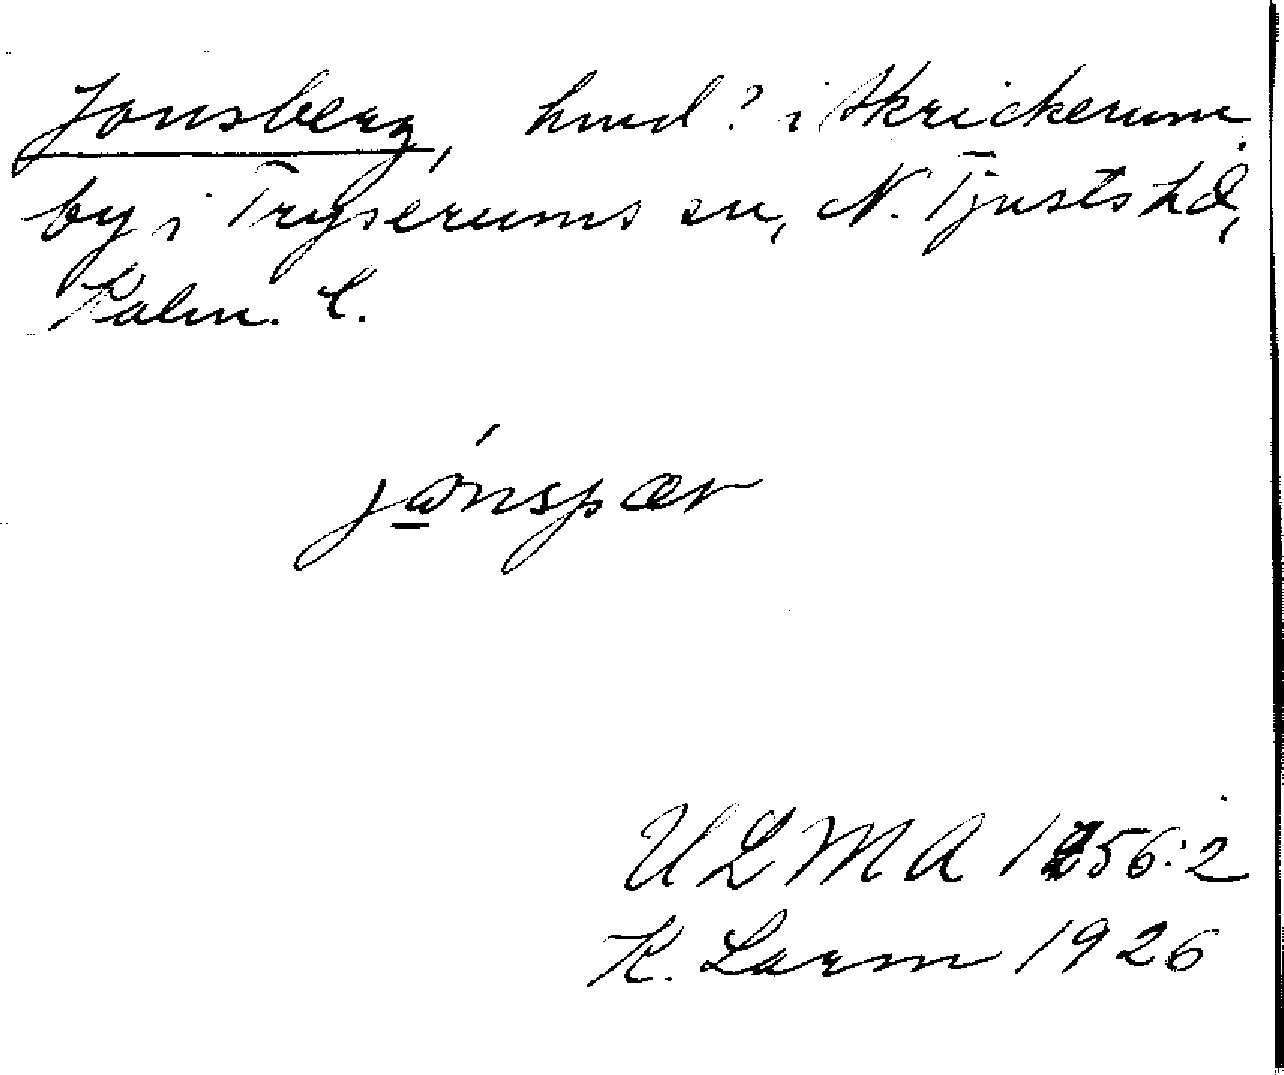 Jonsberg, hmd? i Skrickerum
by i Tryserums sn, N. Tjusts hd,
Kalm. l.
jo̲nspær
ULMA 1256:2
K. Larm 1926